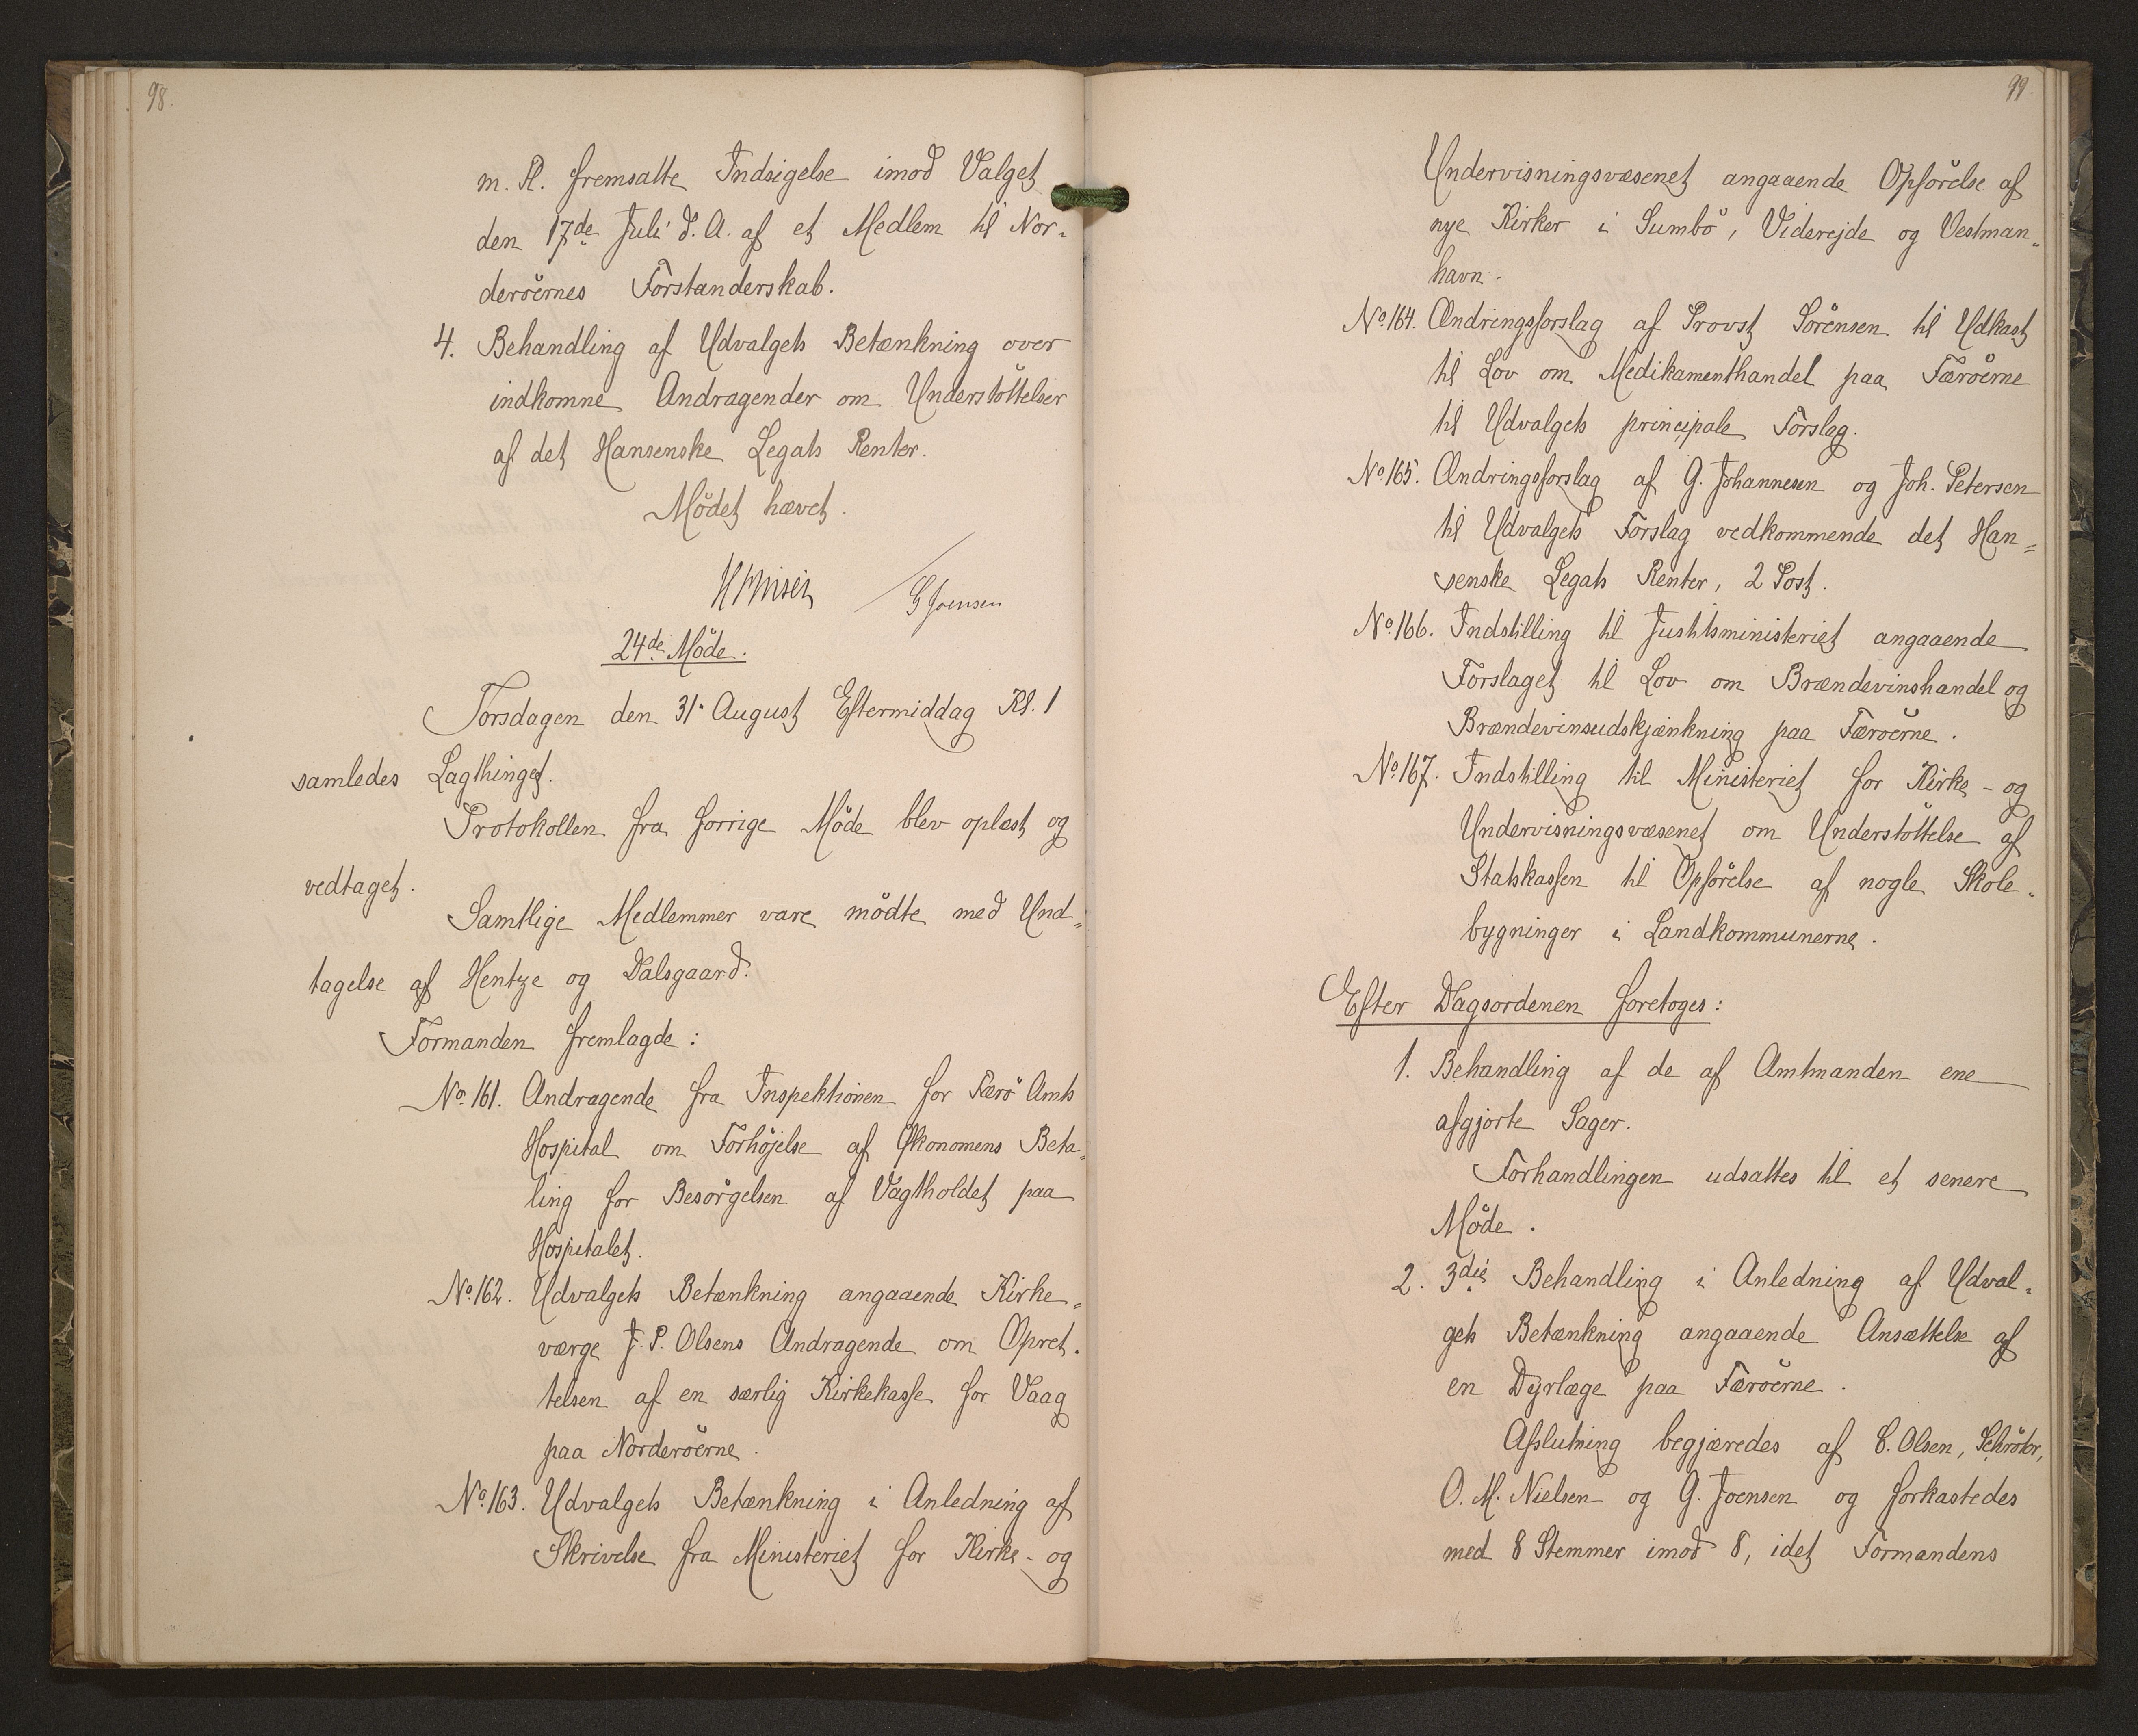 98.
m. Fl. fremsatte Indsigelse imod Valget
den 17de Juli d. A. af et Medlem til Nor-
derøernes Forstanderskab.
4. Behandling af Udvalgets Betænkning over
indkomne Andragender om Understöttelser
af det Hansenske Legats Renter.
Mödet hævet.
G Joensen
24de Möde.
Torsdagen den 31. August Eftermiddag Kl. 1
samledes Lagthinget.
Protokollen fra forrige Möde blev oplæst og
vedtaget.
Samtlige Medlemmer vare mödte med Und=
tagelse af Hentze og Dalsgaard.
Formanden fremlagde:
No. 161. Andragende fra Inspektionen for Færö Amts
Hospital om Forhöjelse af Økonomens Beta=
ling for Besörgelsen af Vagtholdet paa
Hospitalet.
No. 162. Udvalgets Betænkning angaaende Kirke=
værge J. P. Olsens Andragende om Opret-
telsen af en særlig Kirkekasse for Vaag
paa Norderöerne.
No. 163. Udvalgets Betænkning i Anledning af
Skrivelse fra Ministeriet for Kirke- og
99.
Undervisningsvæsenet angaaende Opförelse af
nye Kirker i Sumbö, Viderejde og Vestman=
havn.
No. 164. Ændringsforslag af Provst Sörensen til Udkast
til Lov om Medikamenthandel paa Færöerne
til Udvalgets principale Forslag.
No. 165. Ændringsforslag af G. Johannesen og Joh. Petersen
til Udvalgets Forslag vedkommende det Han=
senske Legats Renter, 2 Post.
No. 166. Indstilling til Justitsministeriet angaaende
Forslaget til Lov om Brændevinshandel og
Brændevinsudskjænkning paa Færöerne.
No. 167. Indstilling til Ministeriet for Kirke- og
Undervisningsvæsenet om Understöttelse af
Statskassen til Opförelse af nogle Skole-
bygninger i Landkommunerne.
Efter Dagsordenen foretoges:
1. Behandling af de af Amtmanden ene
afgjorte Sager.
Forhandlingen udsattes til et senere
Möde.
2. 3die Behandling i Anledning af Udval-
gets Betænkning angaaende Ansættelse af
en Dyrlæge paa Færöerne.
Afslutning begjæredes af C. Olsen, Schröter,
O. M. Nielsen og G. Joensen og forkastedes
med 8 Stemmer imod 8, idet Formandens